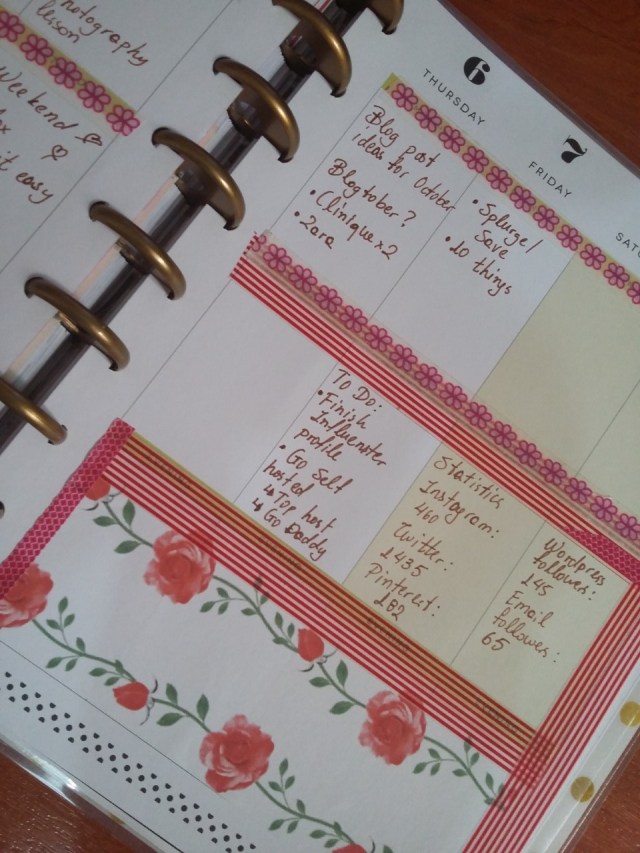 notography
Weekend
it easy
6
THURSDAY
Blog post
ideas for October
Blogtober?
• Clinique x2
• Zara
7
FRIDAY
• Splurge/
Save
• 10 things
SATU
To Do:
• Finish
Influenster
profile
• Go Self
hosted
↳ Top host
↳ Go Daddy
Statistic
Instagram:
460
Twitter:
1435
Pinterest:
182
Wordpress
followes:
145
Email
followes:
65